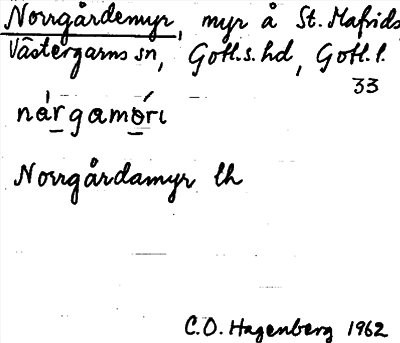 Norrgårdemyr, myr å St. Mafrids
Västergarns sn, Gotl.s.hd, Gotl.l.
33
nárgamǿrı
Norrgårdamyr lh
C.O. Hagenberg 1962